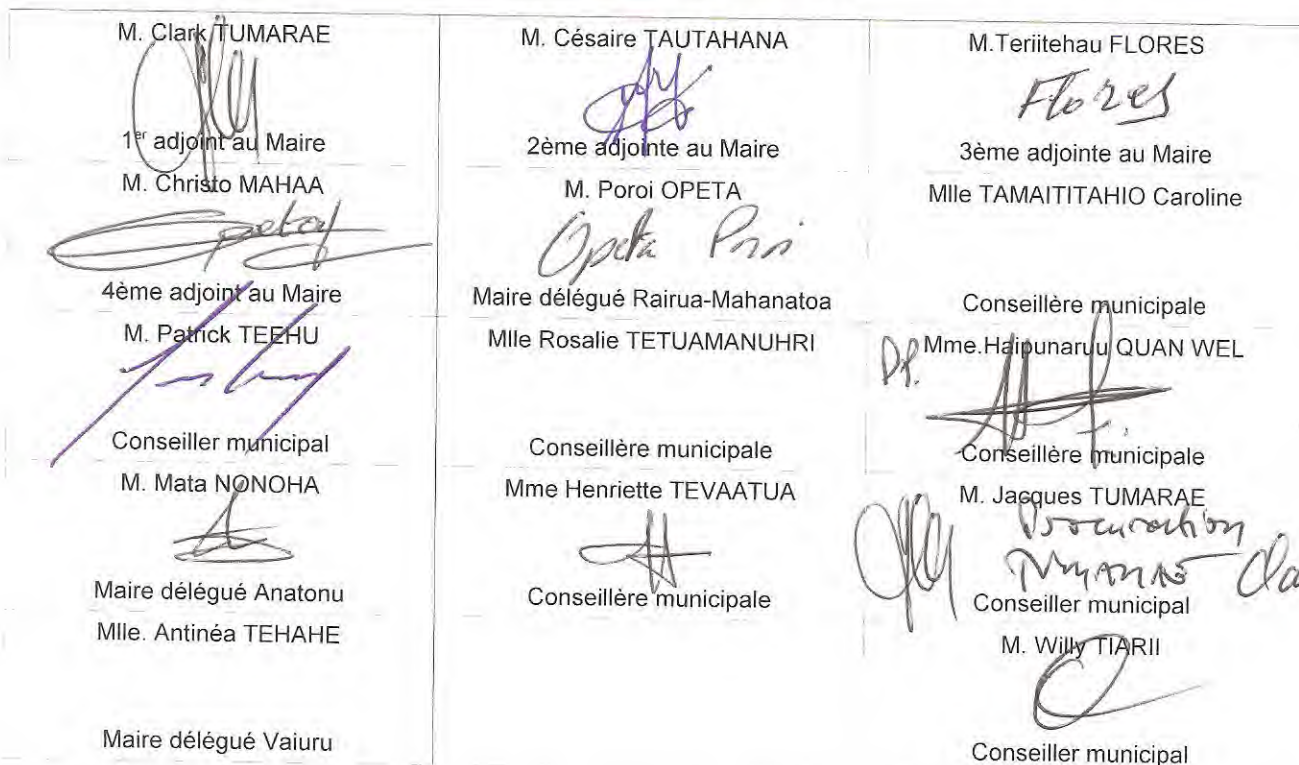 M. Clark TUMARAE
1er adjoint au Maire
M. Christo MAHAA
4ème adjoint au Maire
M. Patrick TEEHU
Conseiller municipal
M. Mata NONOHA
Maire délégué Anatonu
Mlle. Antinéa TEHAHE
Maire délégué Vaiuru
M. Césaire TAUTAHANA
2ème adjointe au Maire
M. Poroi OPETA
Opeta
Maire délégué Rairua-Mahanatoa
Mlle Rosalie TETUAMANUHRI
Conseillère municipale
Mme Henriette TEVAATUA
Conseillère municipale
M.Teriitehau FLORES
Flores
3ème adjointe au Maire
Mlle TAMAITITAHIO Caroline
Conseillère municipale
Mme.Haipunaruu QUAN WEL
Conseillère municipale
M. Jacques TUMARAE
Procuration
Conseiller municipal
M. Willy TIARII
Conseiller municipal